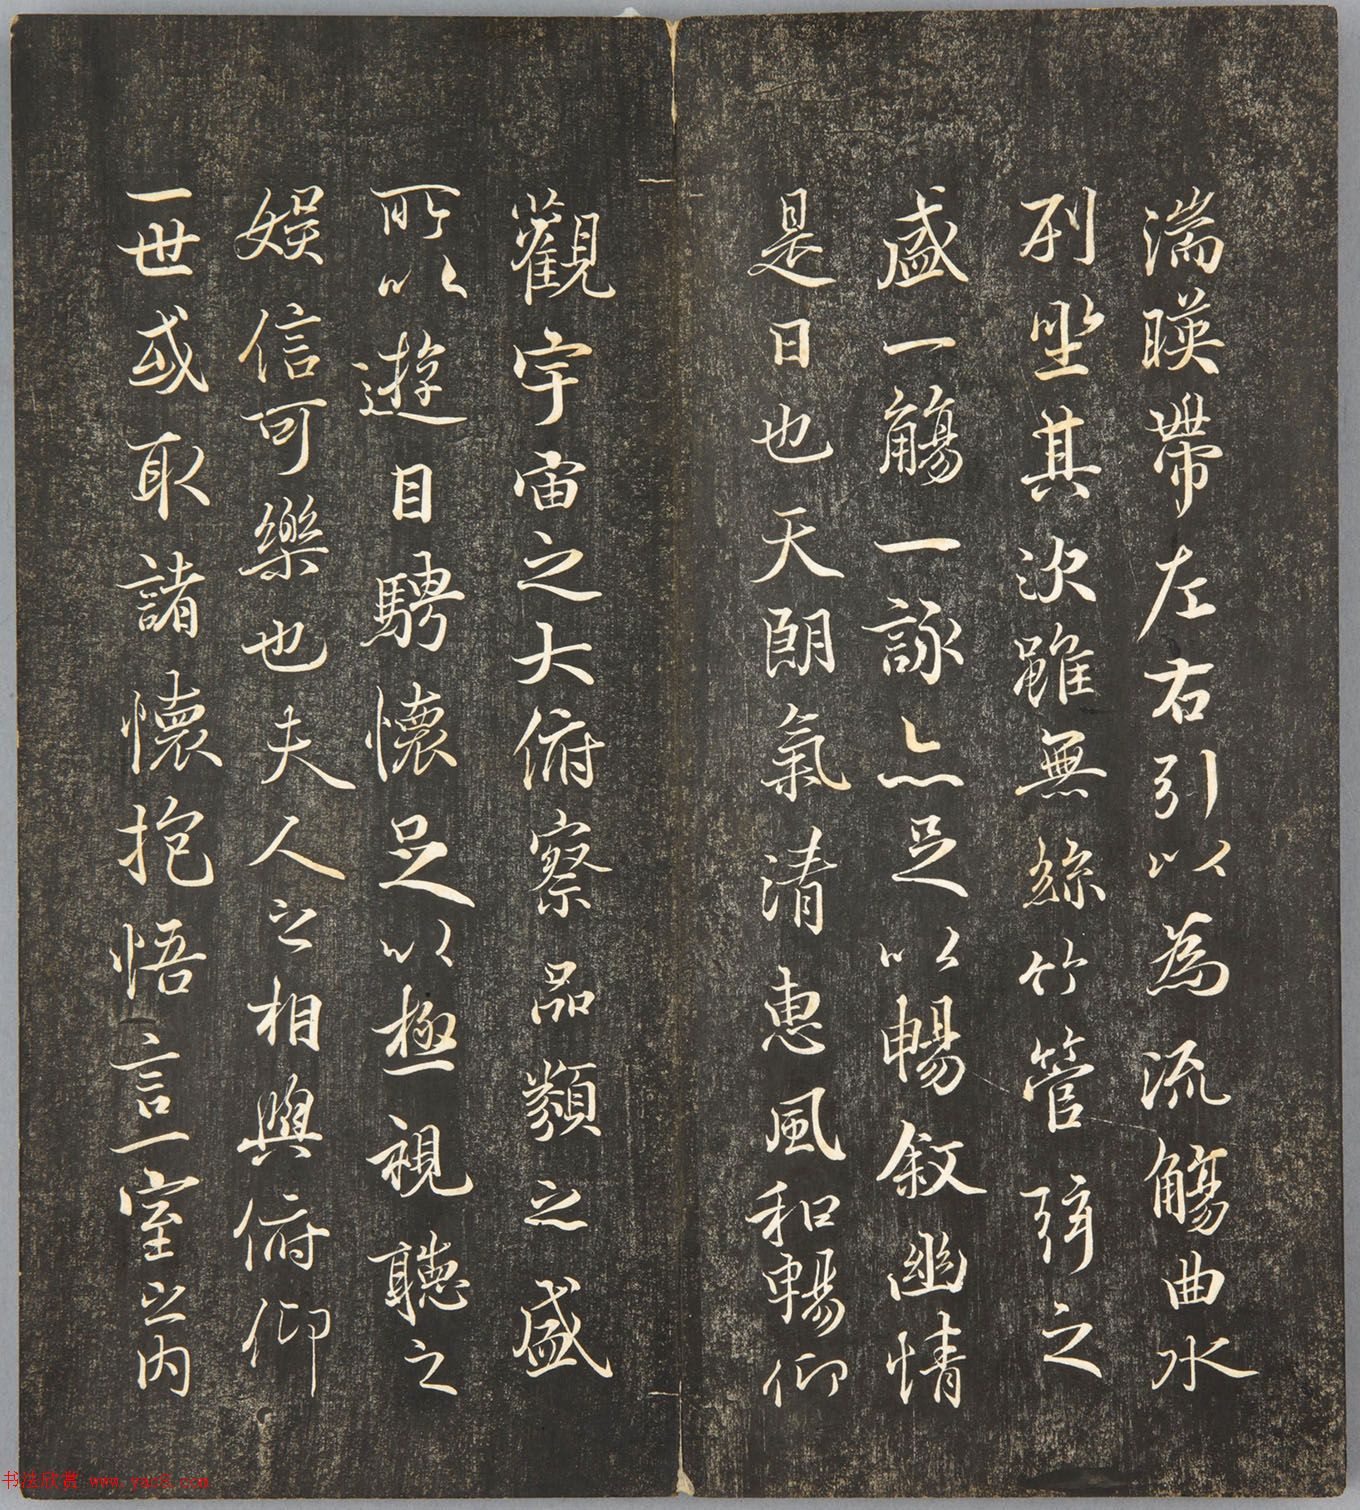 湍暎帶左右引以為流觴曲水
列坐其次雖無絲竹管弦之
盛一觴一詠亦足以暢敘幽情
是日也天朗氣清惠風和暢仰
觀宇宙之大俯察品類之盛
所以遊目騁懷足以極視聽之
娛信可樂也夫人之相與俯仰
一世或取諸懷抱悟言一室之內
书法欣赏 www.yac8.com